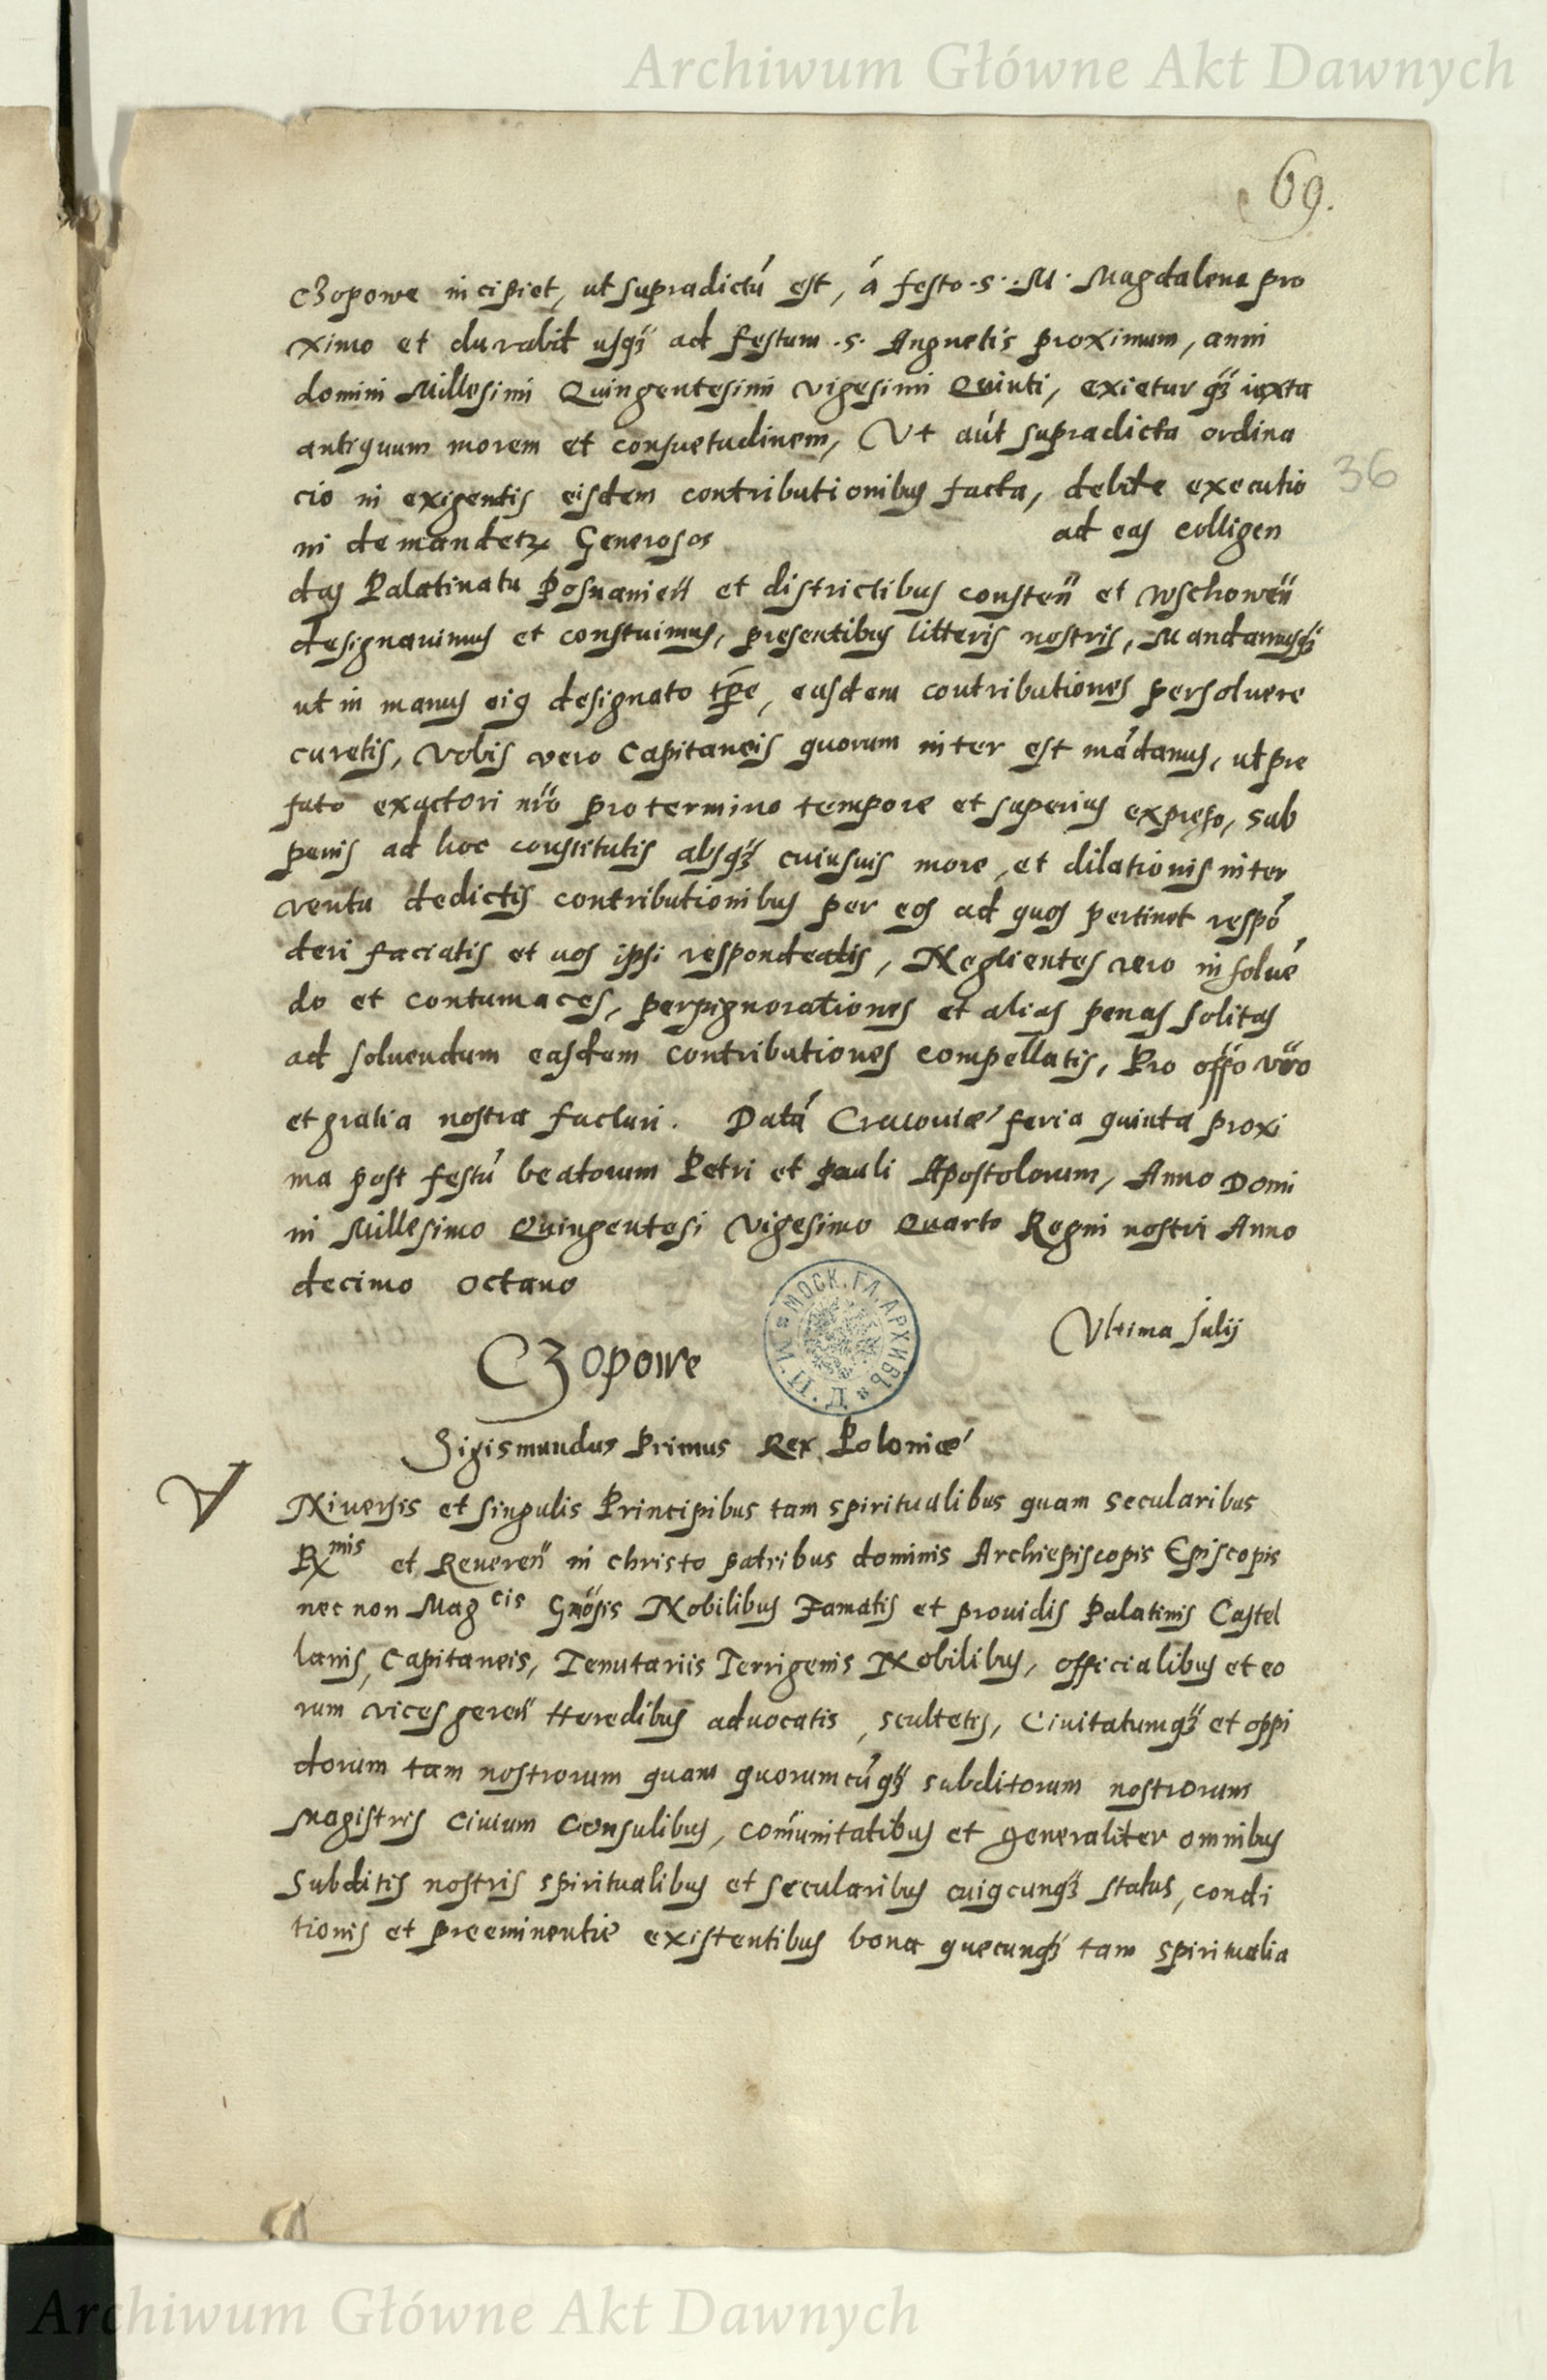 Archiwum Główne Akt Dawnych
69.
czopowe incipiet, ut supradictū est, á festo .s. M. Magdalena pro
ximo et durabit usq3 ad festum .s. Angnetis proximum, anni
domini Millesimi Quingentesimi vigesimi Quinti, exietur q3 iuxta
antiquum morem et consuetudinem, Vt aūt supradicta ordina
cio in exigentis eisdem contributionibus facta, debite executio
36
ni demandetur Generosos ad eas colligen
das Palatinatu Posnanień et districtibus consteń et wschoweń
designauimus et constuimus, presentibus litteris nostris, Mandamusq3
ut in manus eius designato tp̄e, easdem contributiones persoluere
curetis, Vobis vero Capitaneis quorum inter est mādamus, ut pre
fato exactori nr̄o pro termino tempore et superius expresso, sub
penis ad hoc constitutis absq3 cuiusuis more, et dilationis inter
ventu de dictis contributionibus per eos ad quos pertinet respō
deri faciatis et uos ipsi respondeatis, Neglientes vero in soluē
do et contumaces, perpignorationes et alias penas solitas
ad soluendum easdem contributiones compellatis, Pro offō vr̄o
et gratia nostra facturi. Datā Cracouiæ feria quinta proxi
ma post festū beatorum Petri et pauli Apostolorum, Anno Domi
ni Millesimo Quingentesi Vigesimo Quarto Regni nostri Anno
decimo octauo
Vltima Julij
МОСК. ГЛ. АРХИВЪ
Czopowe
Sigismundus Primus Rex Poloniæ
V Niuersis et singulis Principibus tam spiritualibus quam secularibus
Rx^mis et Reuereń in christo patribus dominis Archiepiscopis Episcopis
nec non Mag^cis Gnōsis Nobilibus Famatis et prouidis Palatinis Castel
lanis, Capitaneis, Tenutariis Terrigenis Nobilibus, officialibus et eo
rum vices gereń Heredibus aduocatis, scultetis, Ciuitatumq3 et oppi
dorum tam nostrorum quam quorumcūq3 subditorum nostrorum
Magistris Ciuium Consulibus, comūnitatibus et generaliter omnibus
Subditis nostris spiritualibus et secularibus cuiuscunq3 status, condi
tionis et preeminentie existentibus bona quecunq3 tam spiritualia
Archiwum Główne Akt Dawnych